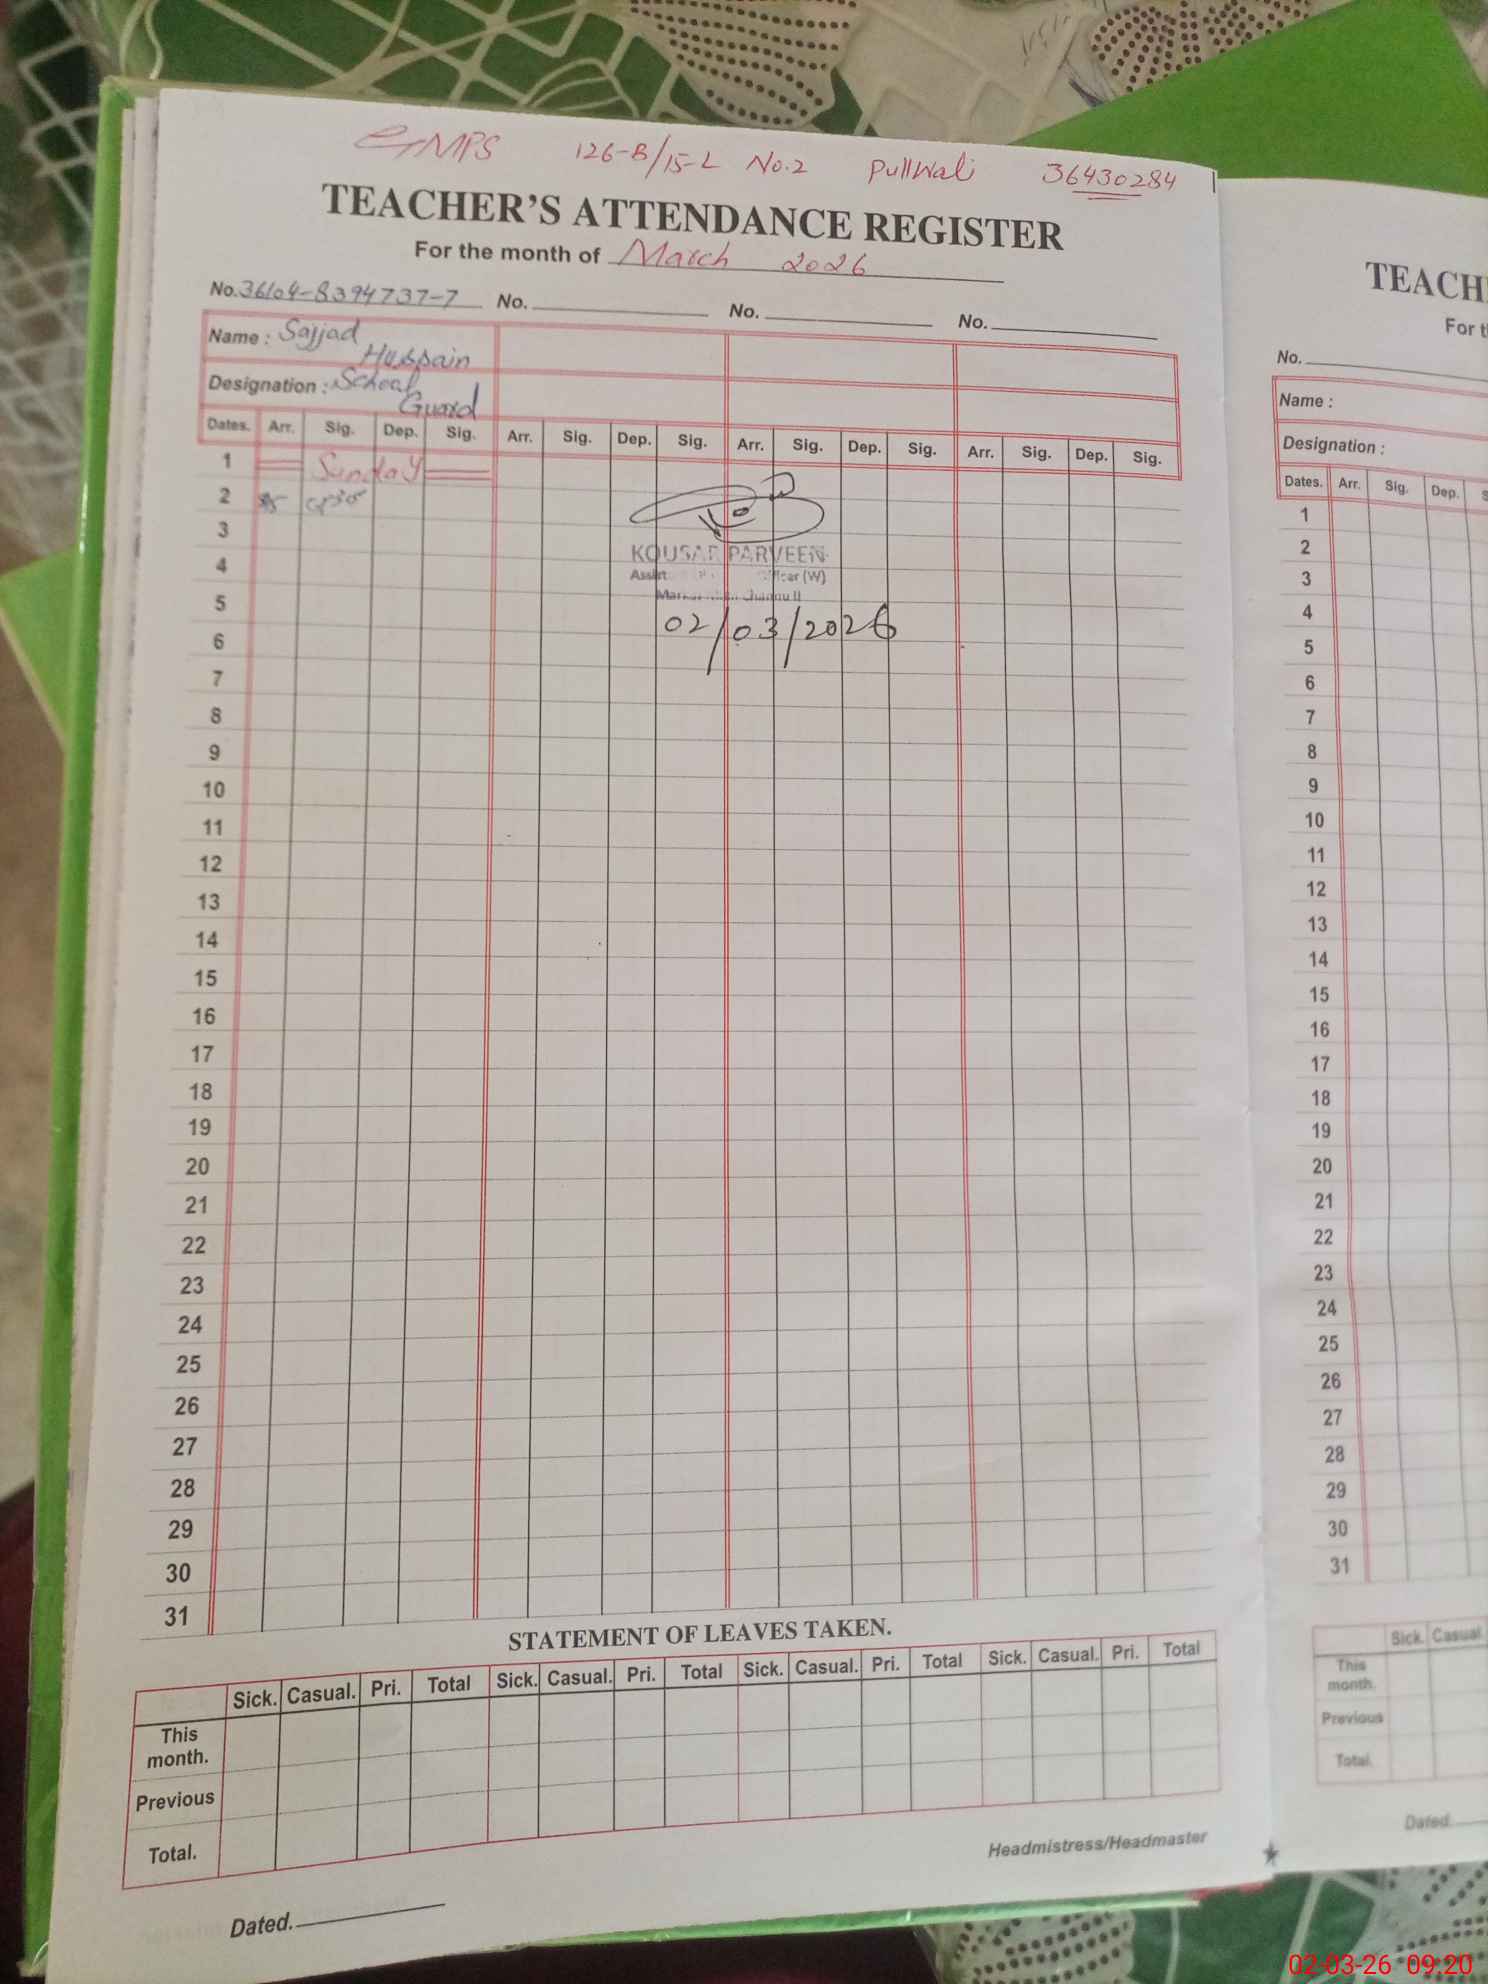 GMPS 126-B/15-L No.2 Pullwali 36430284
TEACHER'S ATTENDANCE REGISTER
For the month of March 2026
No. 36104-8394737-7 No. No. No.
Name : Sajjad Hussain
Designation : School Guard
Dates. Arr. Sig. Dep. Sig. Arr. Sig. Dep. Sig. Arr. Sig. Dep. Sig. Arr. Sig. Dep. Sig.
1 Sunday
2
3
KOUSAR PARVEEN
4 Officer (W)
5
02/03/2026
6
7
8
9
10
11
12
13
14
15
16
17
18
19
20
21
22
23
24
25
26
27
28
29
30
31
STATEMENT OF LEAVES TAKEN.
Sick. Casual. Pri. Total Sick. Casual. Pri. Total Sick. Casual. Pri. Total Sick. Casual. Pri. Total
This month.
Previous
Total.
Headmistress/Headmaster
Dated.
TEACH
For t
No.
Name :
Designation :
Dates. Arr. Sig. Dep. S
1
2
3
4
5
6
7
8
9
10
11
12
13
14
15
16
17
18
19
20
21
22
23
24
25
26
27
28
29
30
31
Sick. Casual.
This month.
Previous
Total.
Dated.
02-03-26 09:20